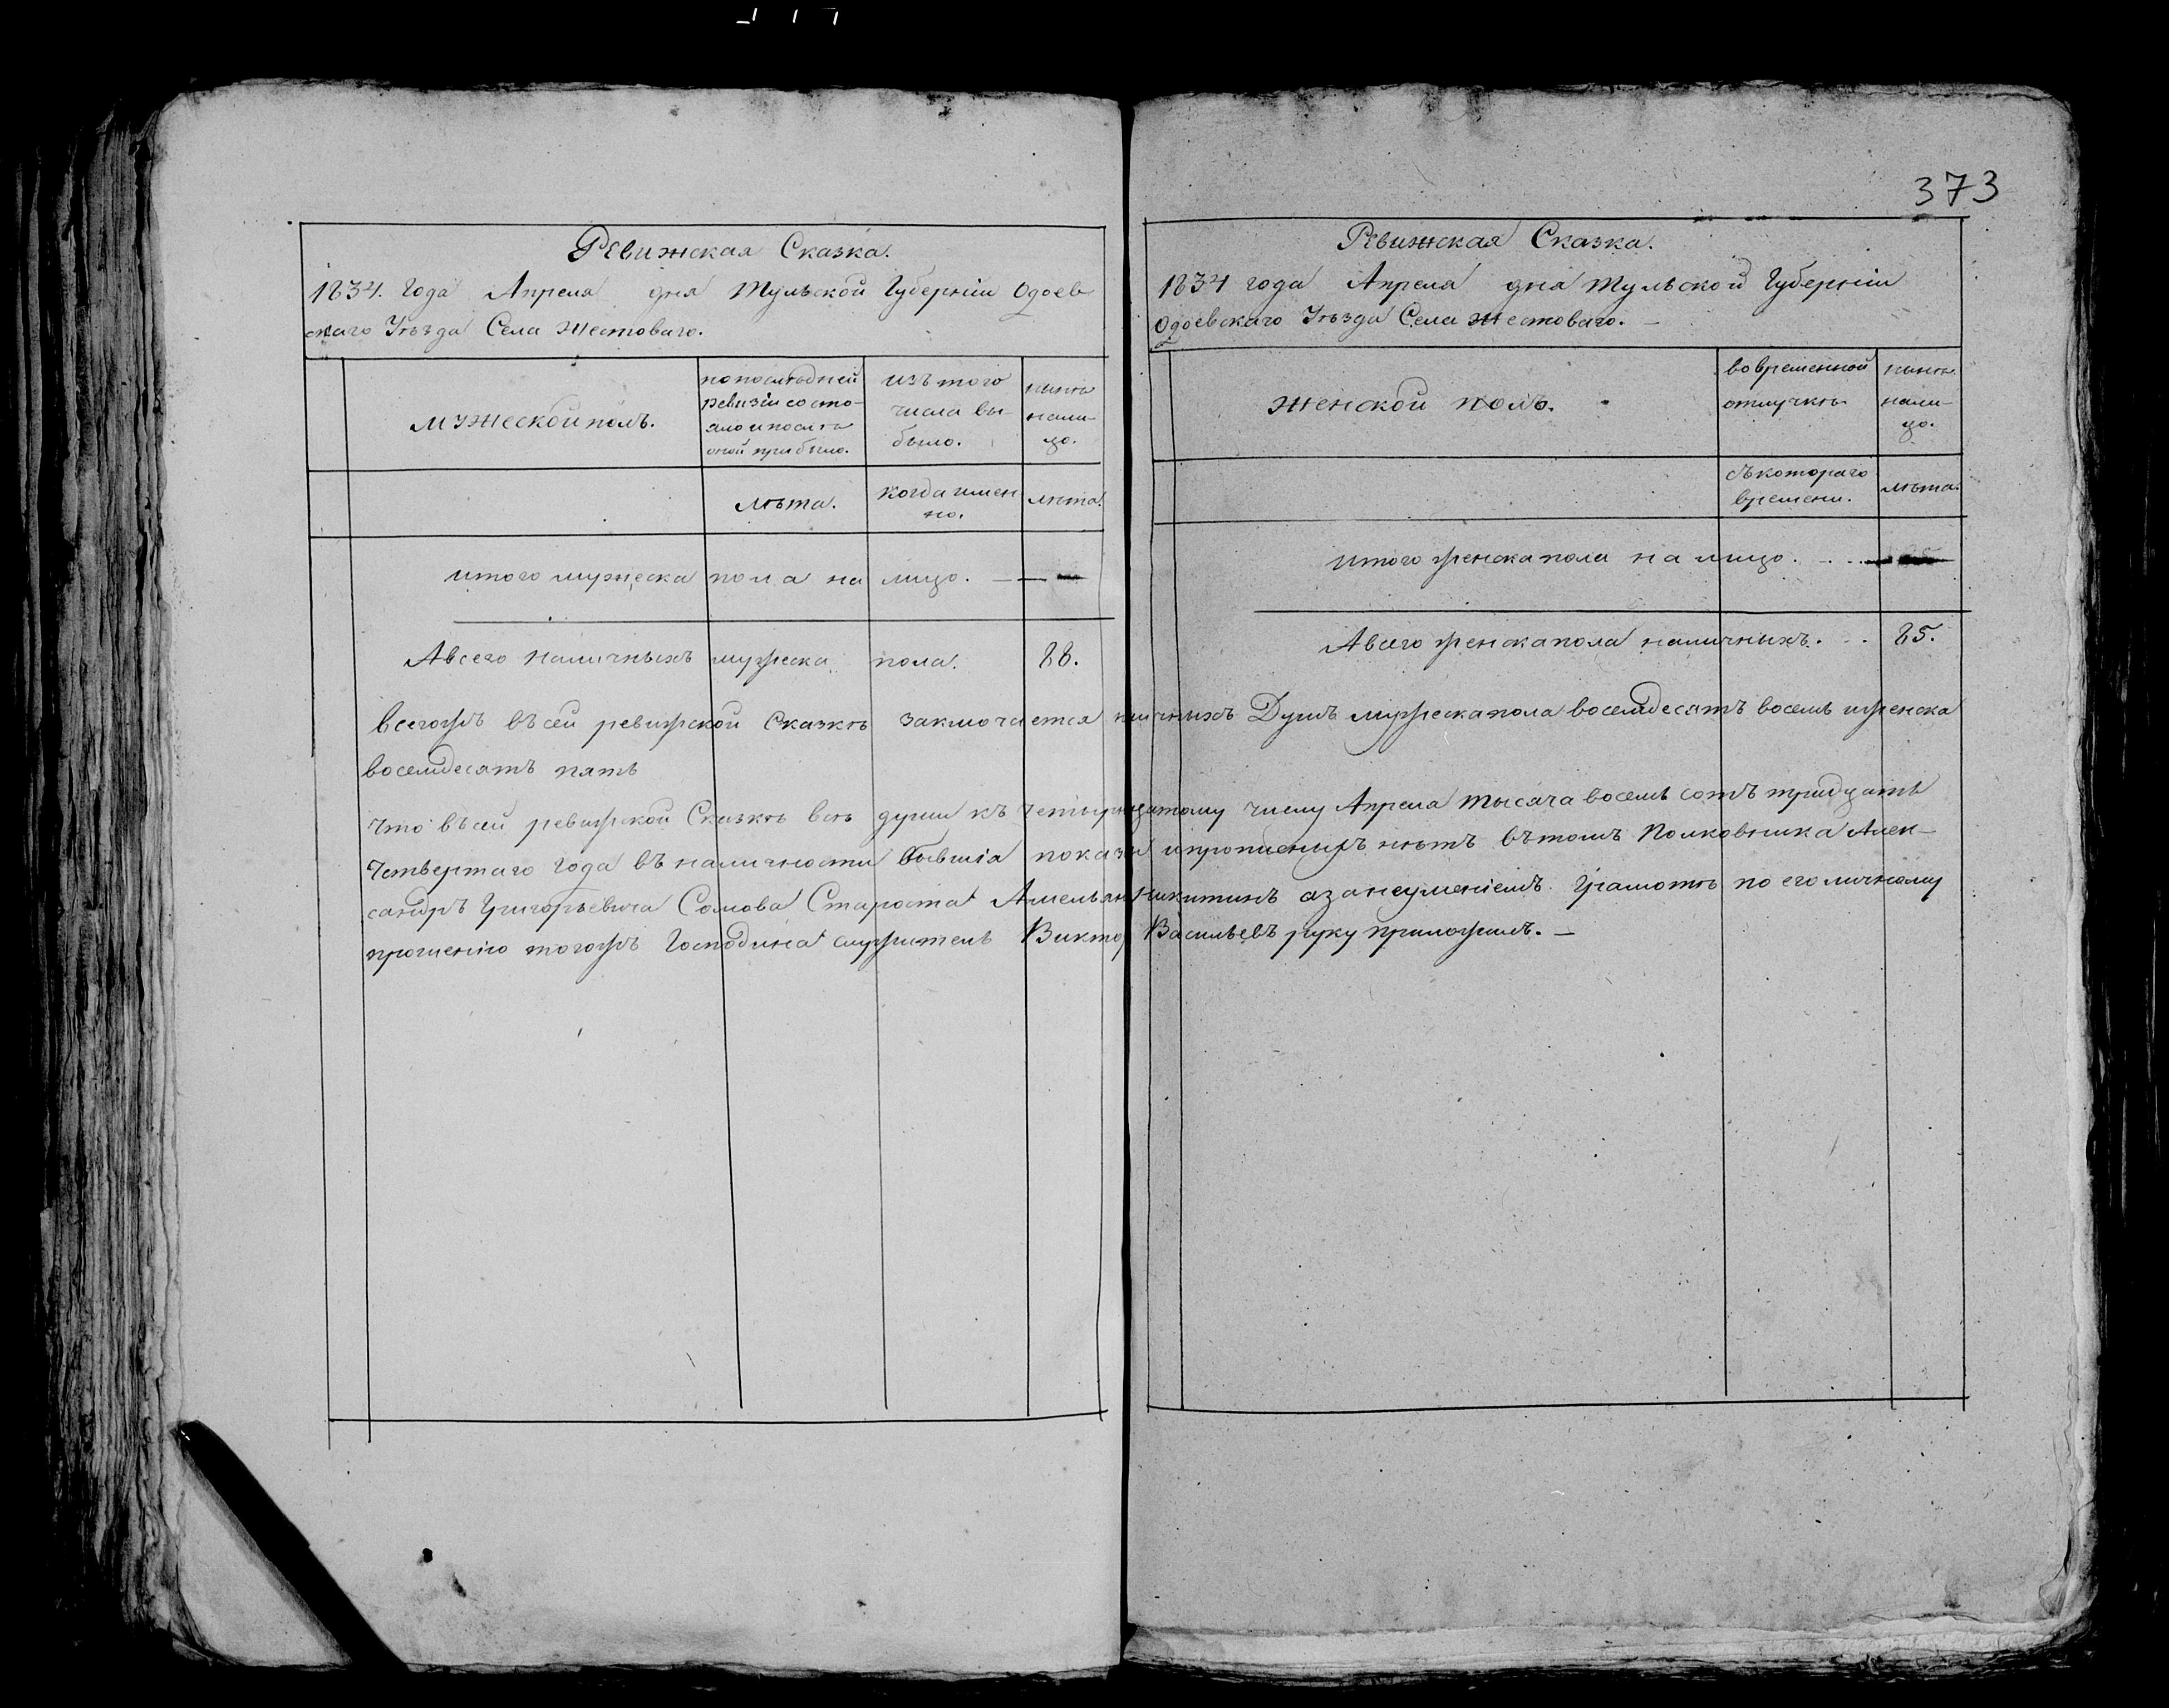 373
Ревижская Сказка.
1834. Года Апреля дня Тульской Губернiи Одоев
скаго Уѣзда Села Жестоваго.
мужеской полъ.
по последней
ревизiи состо-
яло и после
оной прибыло.
изъ того
числа вы-
было.
ныне
нали-
цо.
лѣта.
когда имен
но.
лѣта.
итого мужеска пола на лицо.
Авсего наличныхъ мужеска пола. 88.
Ревижская Сказка.
1834 года Апреля дня Тульской Губернiи
Одоевскаго Уѣзда Села Жестоваго.
женской полъ.
во временной
отлучкѣ
ныне
нали-
цо.
съ котораго
времени.
лѣта.
итого женска пола на лицо.
Авсего женска пола наличныхъ. 85.
всегожъ въ сей ревижской Сказкѣ заключается Душъ мужеска пола восемдесятъ восемь и женска
восемдесятъ пять
что въ сей ревижской Сказкѣ всѣ души къ числу Апреля тысяча восемь сотъ тридцать
четвертаго года въ наличности бывшiя и прописныхъ нѣтъ въ томъ Полковника Алек-
сандръ Григорьевича Сомова Староста Амельян Никитинъ а за неуменiемъ грамотѣ по его личному
прошенiю тогожъ Господина служитель Виктор Васильевъ руку приложилъ.